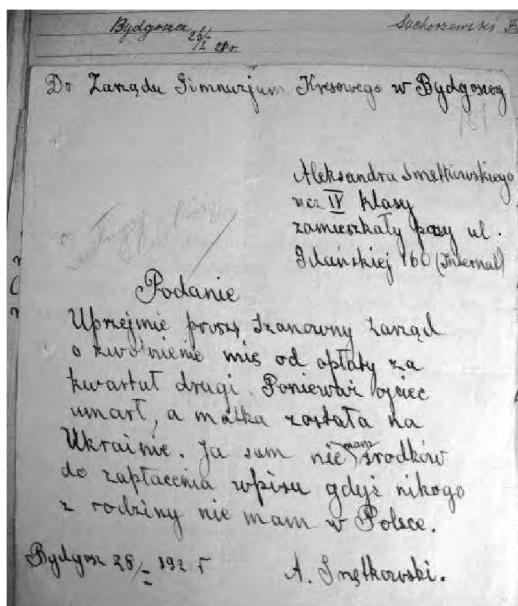 Bydgoszcz
Suchorzewski F
Do Zarządu Gimnazjum Kresowego w Bydgoszczy
Aleksandra Smętkowskiego
ucz IV klasy
zamieszkały przy ul.
Gdańskiej 160 (Internat)
Podanie
Uprzejmie proszę Szanowny Zarząd
o zwolnienie mię od opłaty za
kwartał drugi. Ponieważ ojciec
umarł, a matka została na
Ukrainie. Ja sam nie mam środków
do zapłacenia wpisu gdyż nikogo
z rodziny nie mam w Polsce.
Bydgosz 28/I 192 r
A. Smętkowski.